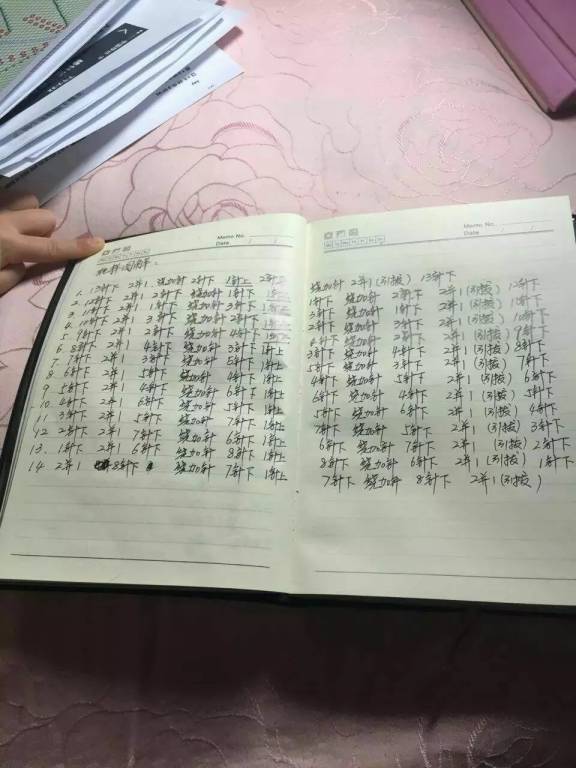 Memo No.
Date
1. 13针下 2并1 绕加针 2针下 1针上 2针下
2. 12针下 2并1 2针下 绕加针 1针下 1针上
3. 11针下 2并1 1针下 绕加针 3针下 1针上
4. 10针下 2并1 3针下 绕加针 2针下 1针上
5. 9针下 2并1 2针下 绕加针 4针下 1针上
6. 8针下 2并1 4针下 绕加针 3针下 1针上
7. 7针下 2并1 3针下 绕加针 5针下 1针上
8. 6针下 2并1 5针下 绕加针 4针下 1针上
9. 5针下 2并1 4针下 绕加针 6针下 1针上
10. 4针下 2并1 6针下 绕加针 5针下 1针上
11. 3针下 2并1 5针下 绕加针 7针下 1针上
12. 2针下 2并1 7针下 绕加针 6针下 1针上
13. 1针下 2并1 6针下 绕加针 8针下 1针上
14. 2并1 8针下 绕加针 7针下 1针上
Memo No.
Date
绕加针 2并1(引拔) 13针下
1针下 绕加针 2针下 2并1(引拔) 12针下
3针下 绕加针 1针下 2并1(引拔) 11针下
2针下 绕加针 3针下 2并1(引拔) 10针下
4针下 绕加针 2针下 2并1(引拔) 9针下
3针下 绕加针 4针下 2并1(引拔) 8针下
5针下 绕加针 3针下 2并1(引拔) 7针下
4针下 绕加针 5针下 2并1(引拔) 6针下
6针下 绕加针 4针下 2并1(引拔) 5针下
5针下 绕加针 6针下 2并1(引拔) 4针下
7针下 绕加针 5针下 2并1(引拔) 3针下
6针下 绕加针 7针下 2并1(引拔) 2针下
8针下 绕加针 6针下 2并1(引拔) 1针下
7针下 绕加针 8针下 2并1(引拔)